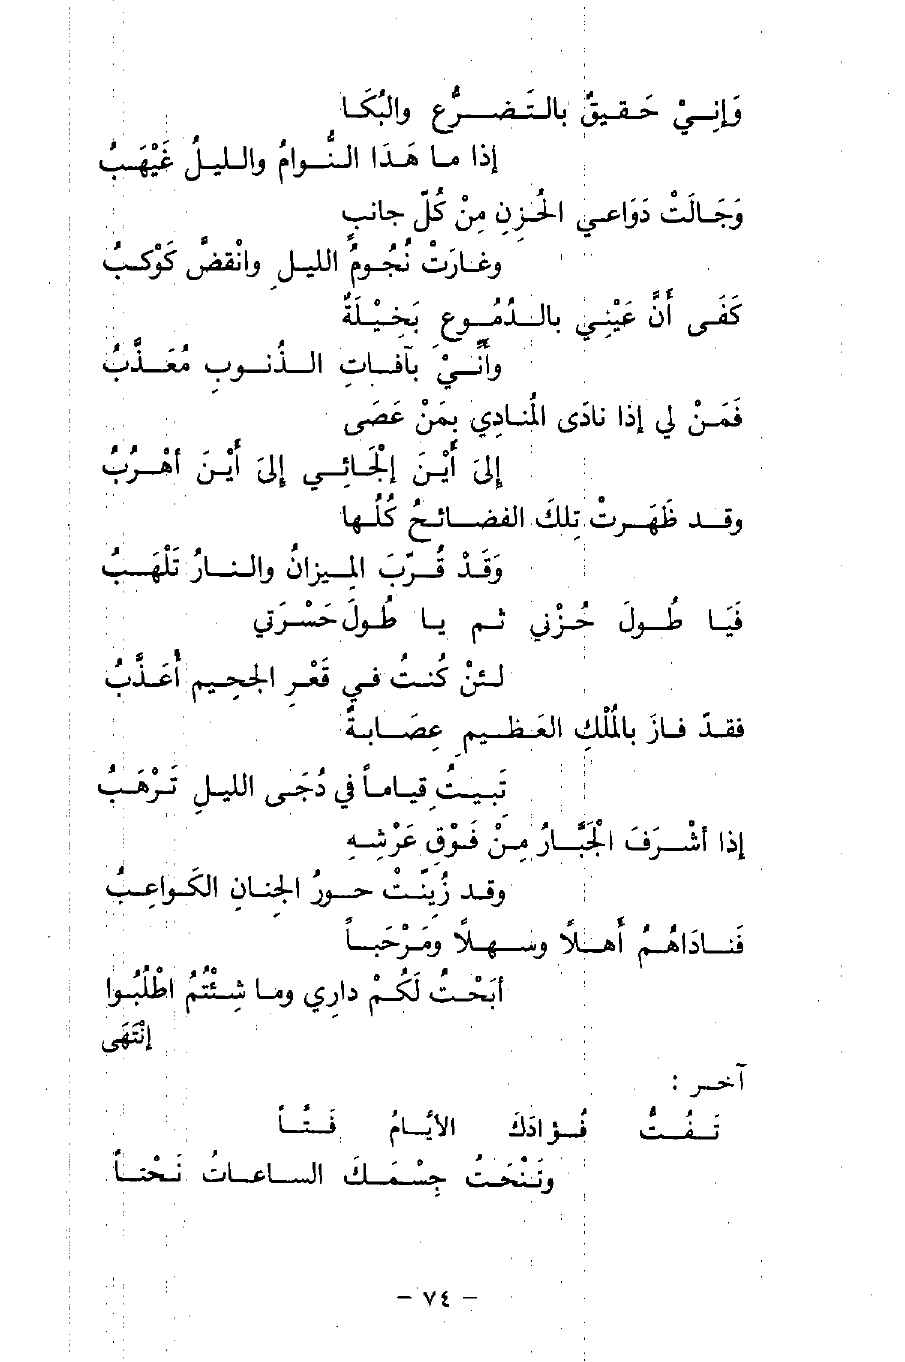 وَإِنِيْ حَقِيقٌ بالتَضرُّعِ والبُكَا
إذا ما هَذَا النُّوامُ والليلُ غَيْهَبُ
وَجَالَتْ دَوَاعي الحُزنِ مِنْ كُلّ جانبٍ
وغارَتْ نُجُومُ الليلِ وانْقضَّ كَوْكبُ
كَفَى أَنَّ عَيْنِي بالدُمُوعِ بَخِيْلَةٌ
وأنَّيْ بآفاتِ الذُنوبِ مُعَذَّبُ
فَمَنْ لي إذا نادَى المُنادِي بِمَنْ عَصَى
إلىَ أَيْنَ إلْجَائِي إلىَ أَيْنَ أهْرُبُ
وقد ظَهَرتْ تِلكَ الفضائحُ كُلُها
وَقَدْ قُرّبَ المِيزانُ والنارُ تَلْهَبُ
فَيَا طُولَ حُزْنِي ثم يا طُولَ حَسْرَتي
لئنْ كُنتُ في قَعْرِ الجحيم أُعَذَّبُ
فقدّ فازَ بالمُلْكِ العَظيمِ عِصَابةٌ
تَبيتُ قِياماً في دُجَى الليلِ تَرْهَبُ
إذا أشْرَفَ الجَبَّارُ مِنْ فَوْقِ عَرْشِه
وقد زُيّنَتْ حورُ الجنانِ الكَواعِبُ
فَنادَاهُمُ أَهلاً وسَهلاً ومَرْحَباً
أبَحْتُ لَكُمْ داري وما شِئْتُمُ اطْلُبُوا
إنْتَهَى
آخر :
تَفُتُّ فُؤادَكَ الأيَّامُ فَتُّاً
وتَنْحَتُ جِسْمَكَ الساعاتُ نَحْتاً
– ٧٤ –